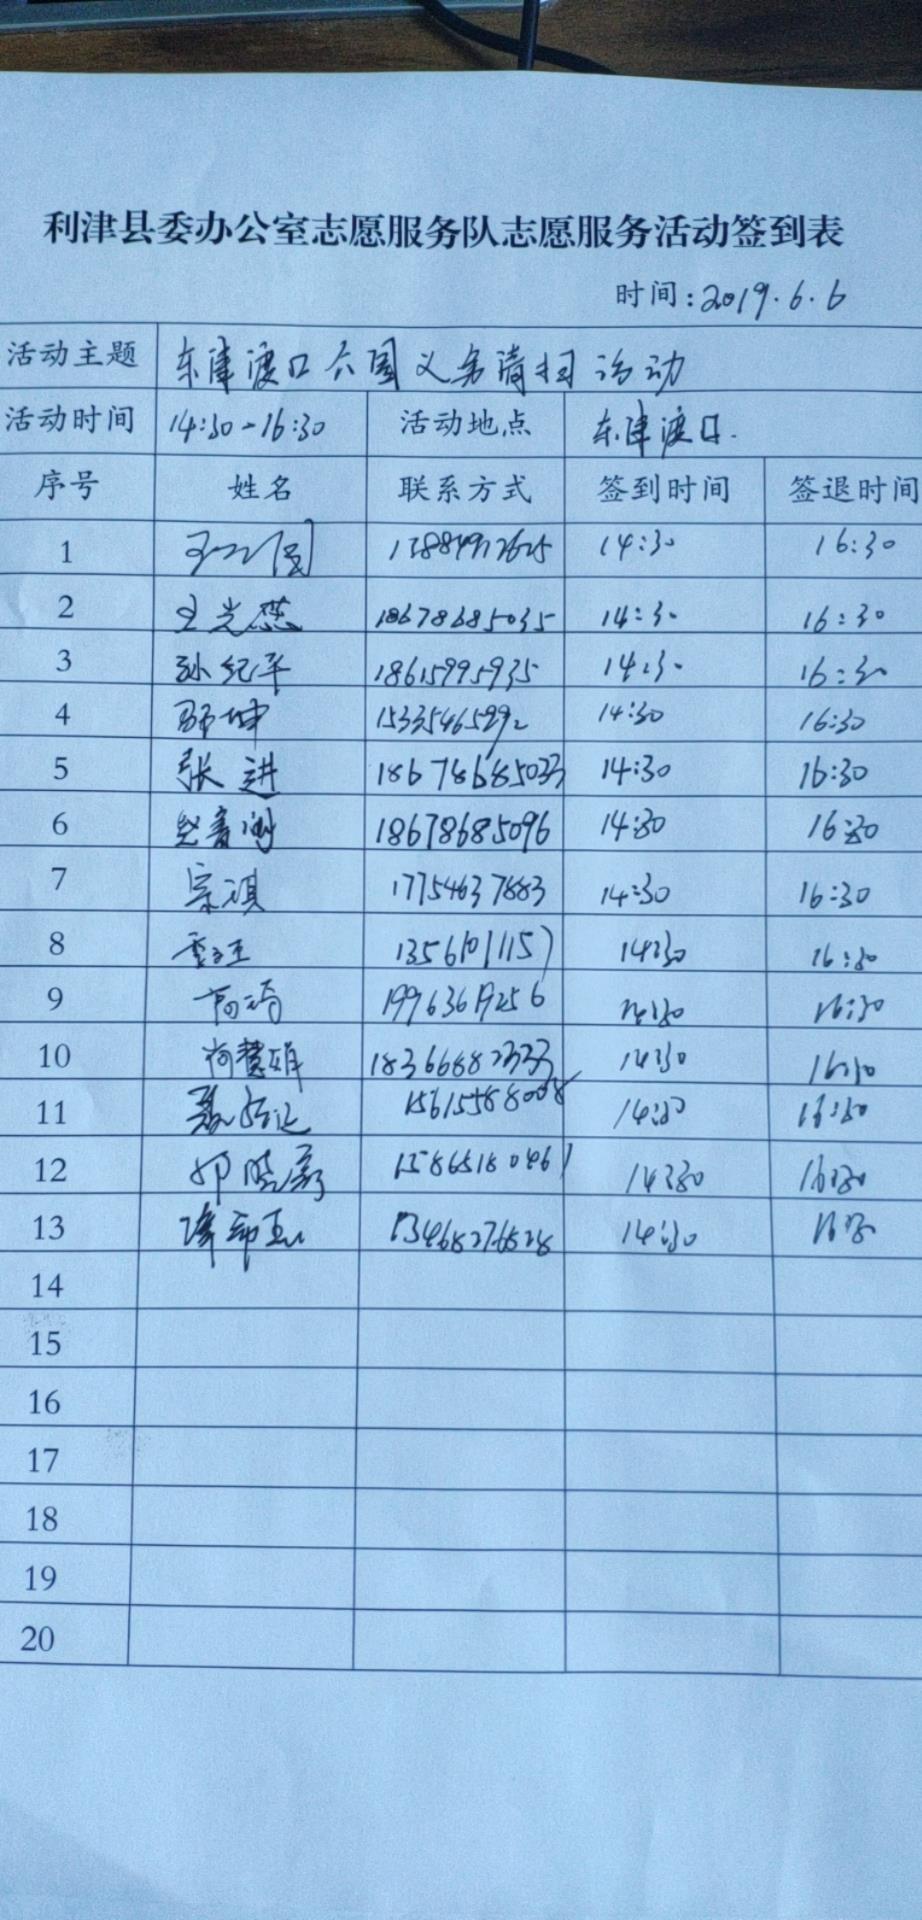 利津县委办公室志愿服务队志愿服务活动签到表
时间:2019.6.6
活动主题 东津渡口公园义务清扫活动
活动时间 14:30-16:30 活动地点 东津渡口.
序号 姓名 联系方式 签到时间 签退时间
1 14:30 16:30
2 王光蕊 18678685035 14:30 16:30
3 孙纪平 18615995935 14:30 16:30
4 14:30 16:30
5 张进 18678685033 14:30 16:30
6 18678685096 14:30 16:30
7 宗祺 17754637883 14:30 16:30
8 14:30 16:30
9 14:30 16:30
10 尚慧雅 18366882333 14:30 16:30
11 15615588008 14:30 16:30
12 15865180461 14:30 16:30
13 13468276828 14:30 16:30
14
15
16
17
18
19
20